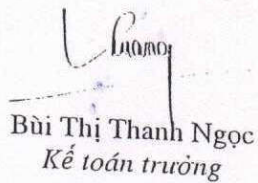 Bùi Thị Thanh Ngọc
Kế toán trưởng